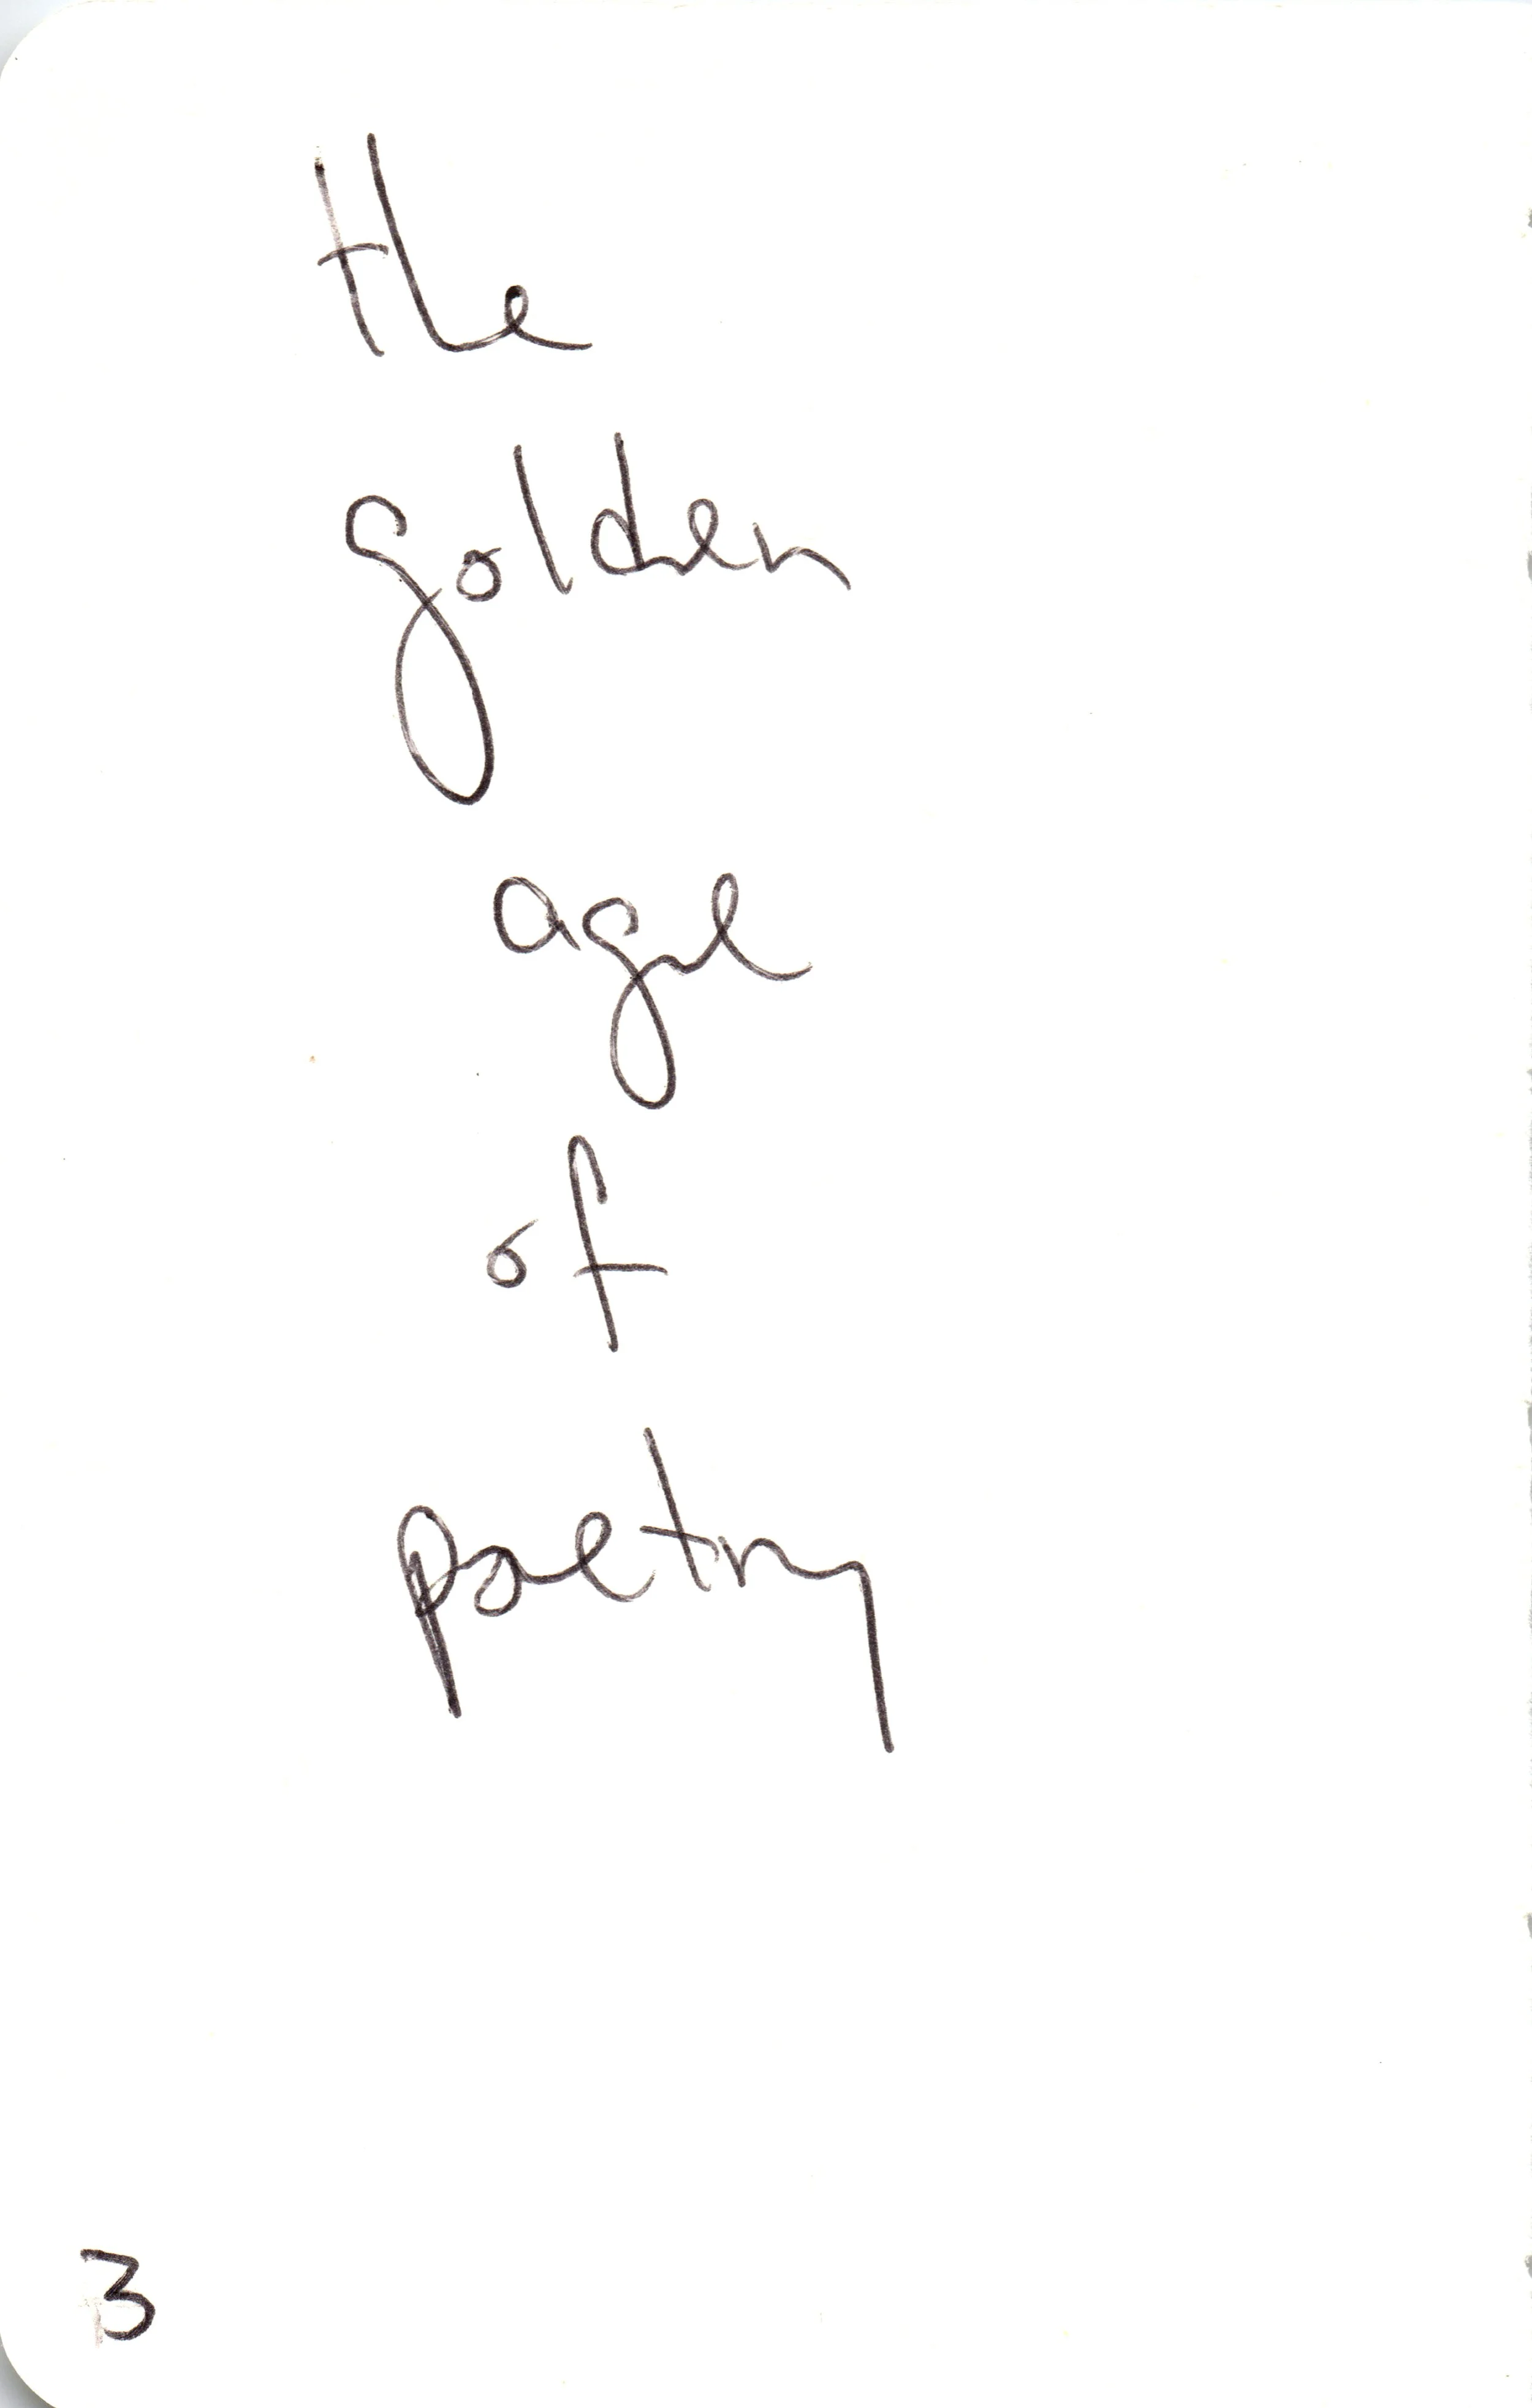 the
golden
age
of
poetry
3